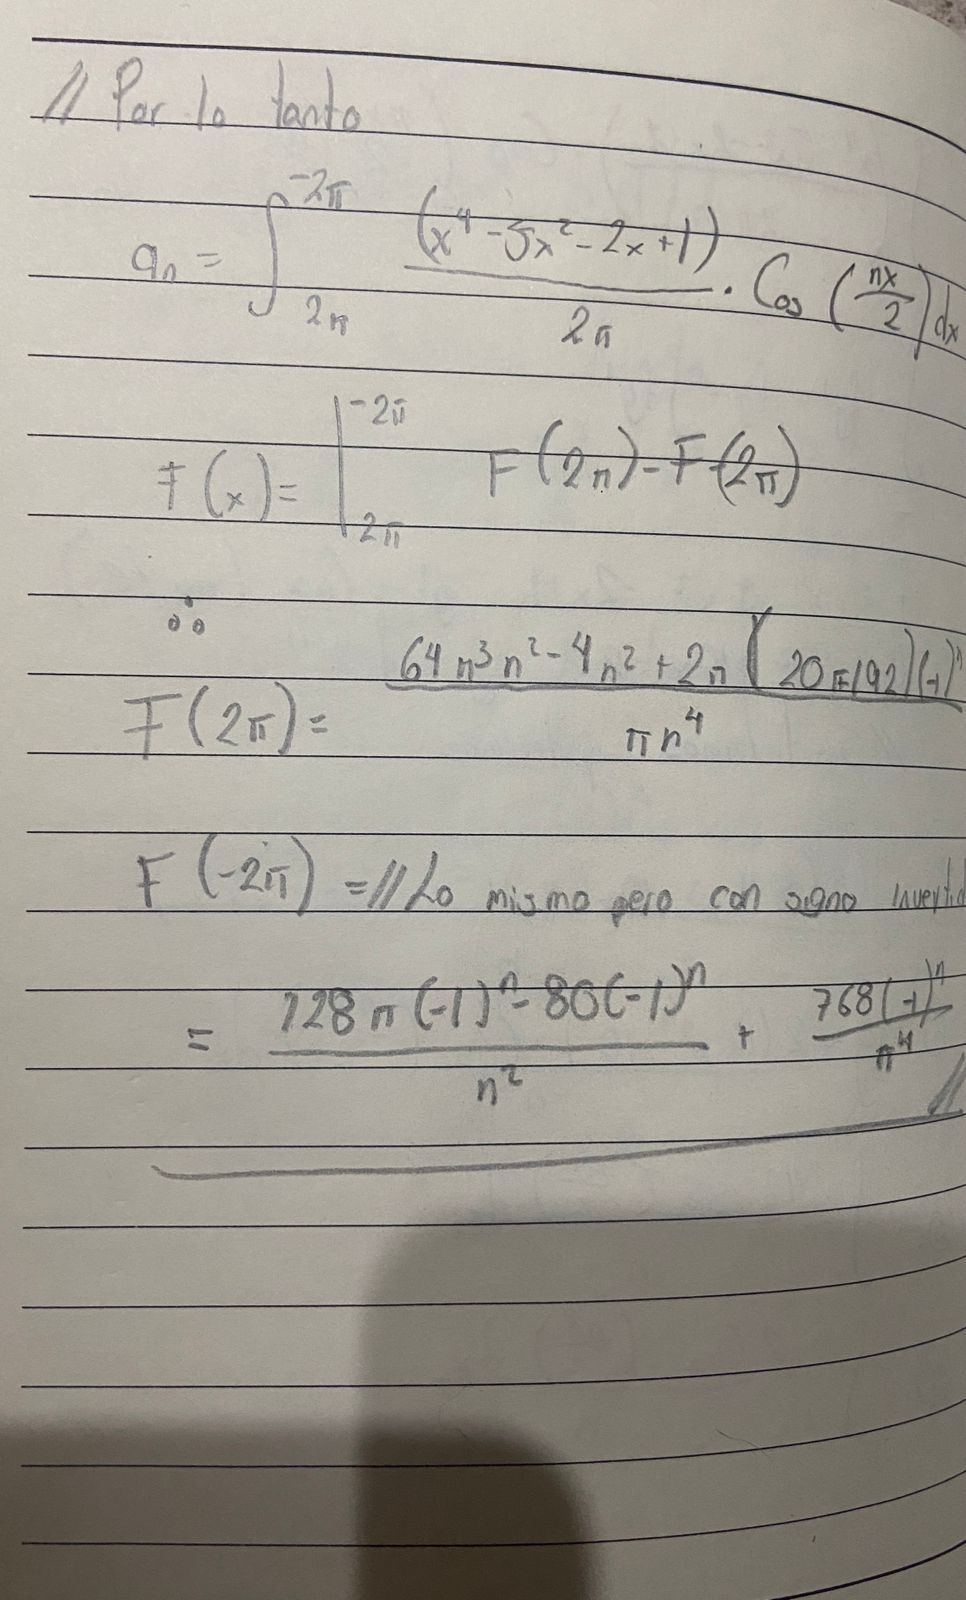 // Por lo tanto
aₙ = ∫_{2π}^{-2π} (x⁴ - 5x² - 2x + 1) / 2π · Cos (nx/2) dx
F(x) = |_{2π}^{-2π} F(2π) - F(2π)
∴
F(2π) = 64π³n² - 4n² + 2π (20π192)(-1)ⁿ / πn⁴
F(-2π) = // Lo mismo pero con signo invertid
= 128π(-1)ⁿ - 80(-1)ⁿ / n² + 768(-1)ⁿ / n⁴ //